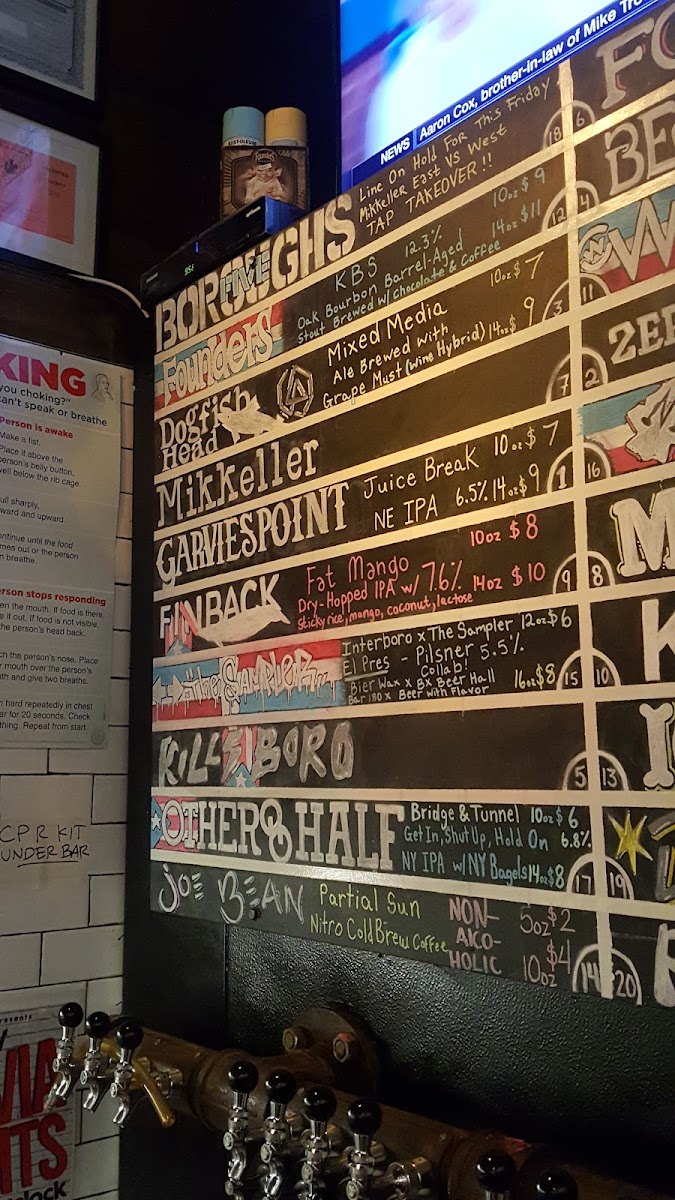 NEWS Aaron Cox, brother-in-law of Mike
RUST-OLEUM
FIVE
BOROUGHS
Line On Hold For This Friday
Mikkeller East VS West
TAP TAKEOVER!!
18
6
Founders
KBS 12.3%
Oak Bourbon Barrel-Aged
Stout Brewed w/ Chocolate & Coffee
10oz $9
14oz $11
12
4
Dogfish
Head
Mixed Media
Ale Brewed with
Grape Must (Wine Hybrid)
10oz $7
14oz $9
3
11
Mikkeller
7
2
GARVIESPOINT
Juice Break
NE IPA 6.5%
10oz $7
14oz $9
1
16
FINBACK
Fat Mango
Dry-Hopped IPA w/ 7.6%
sticky rice, mango, coconut, lactose
10oz $8
14oz $10
9
8
SAMPLER
Interboro x The Sampler 12oz $6
El Pres - Pilsner 5.5%
Collab!
Bier Wax x BX Beer Hall
Bar 180 x Beer with Flavor
16oz $8
15
10
KILLSBORO
5
13
OTHER HALF
Bridge & Tunnel 10oz $6
Get In, Shut Up, Hold On 6.8%
NY IPA w/ NY Bagels 14oz $8
17
19
JOE BEAN
Partial Sun
Nitro Cold Brew Coffee
NON-
ALCO-
HOLIC
5oz $2
10oz $4
14
20
FO
BE
ZE
M
K
KING
you choking?"
can't speak or breathe
Person is awake
Make a fist.
Place it above the
person's belly button,
well below the rib cage.
ull sharply,
ward and upward.
ontinue until the food
mes out or the person
n breathe.
erson stops responding
en the mouth. If food is there,
e it out. If food is not visible,
the person's head back.
ch the person's nose. Place
r mouth over the person's
uth and give two breaths.
n hard repeatedly in chest
er for 20 seconds. Check
thing. Repeat from start.
CPR KIT
UNDER BAR
resents
VIA
HTS
lock